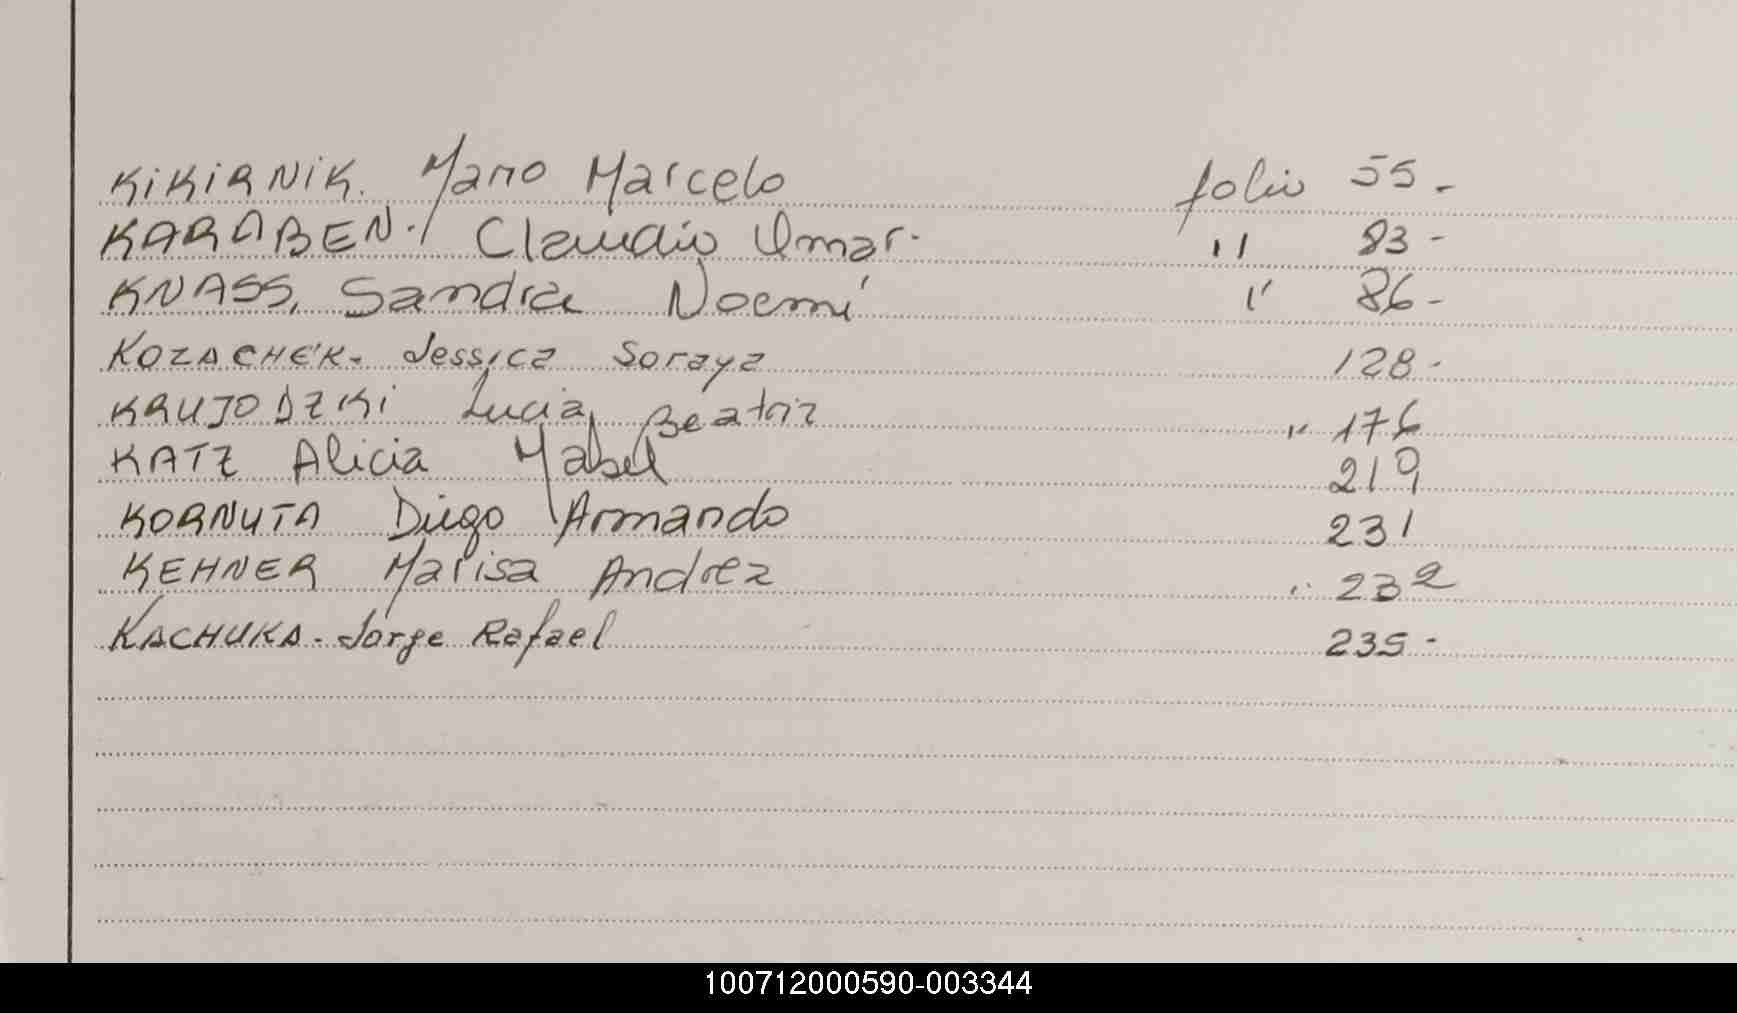 KIKIRNIK. Mario Marcelo folio 55.-
KARABEN. Claudio Omar. " 83-
KNASS, Sandra Noemí " 86-
KOZACHEK. Jessica Soraya 128-
KRUJODZKI Lucia Beatriz " 176
KATZ Alicia Mabel 219
KORNUTA Diego Armando 231
KEHNER Marisa Andrea " 232
KACHUKA. Jorge Rafael 235-
100712000590-003344